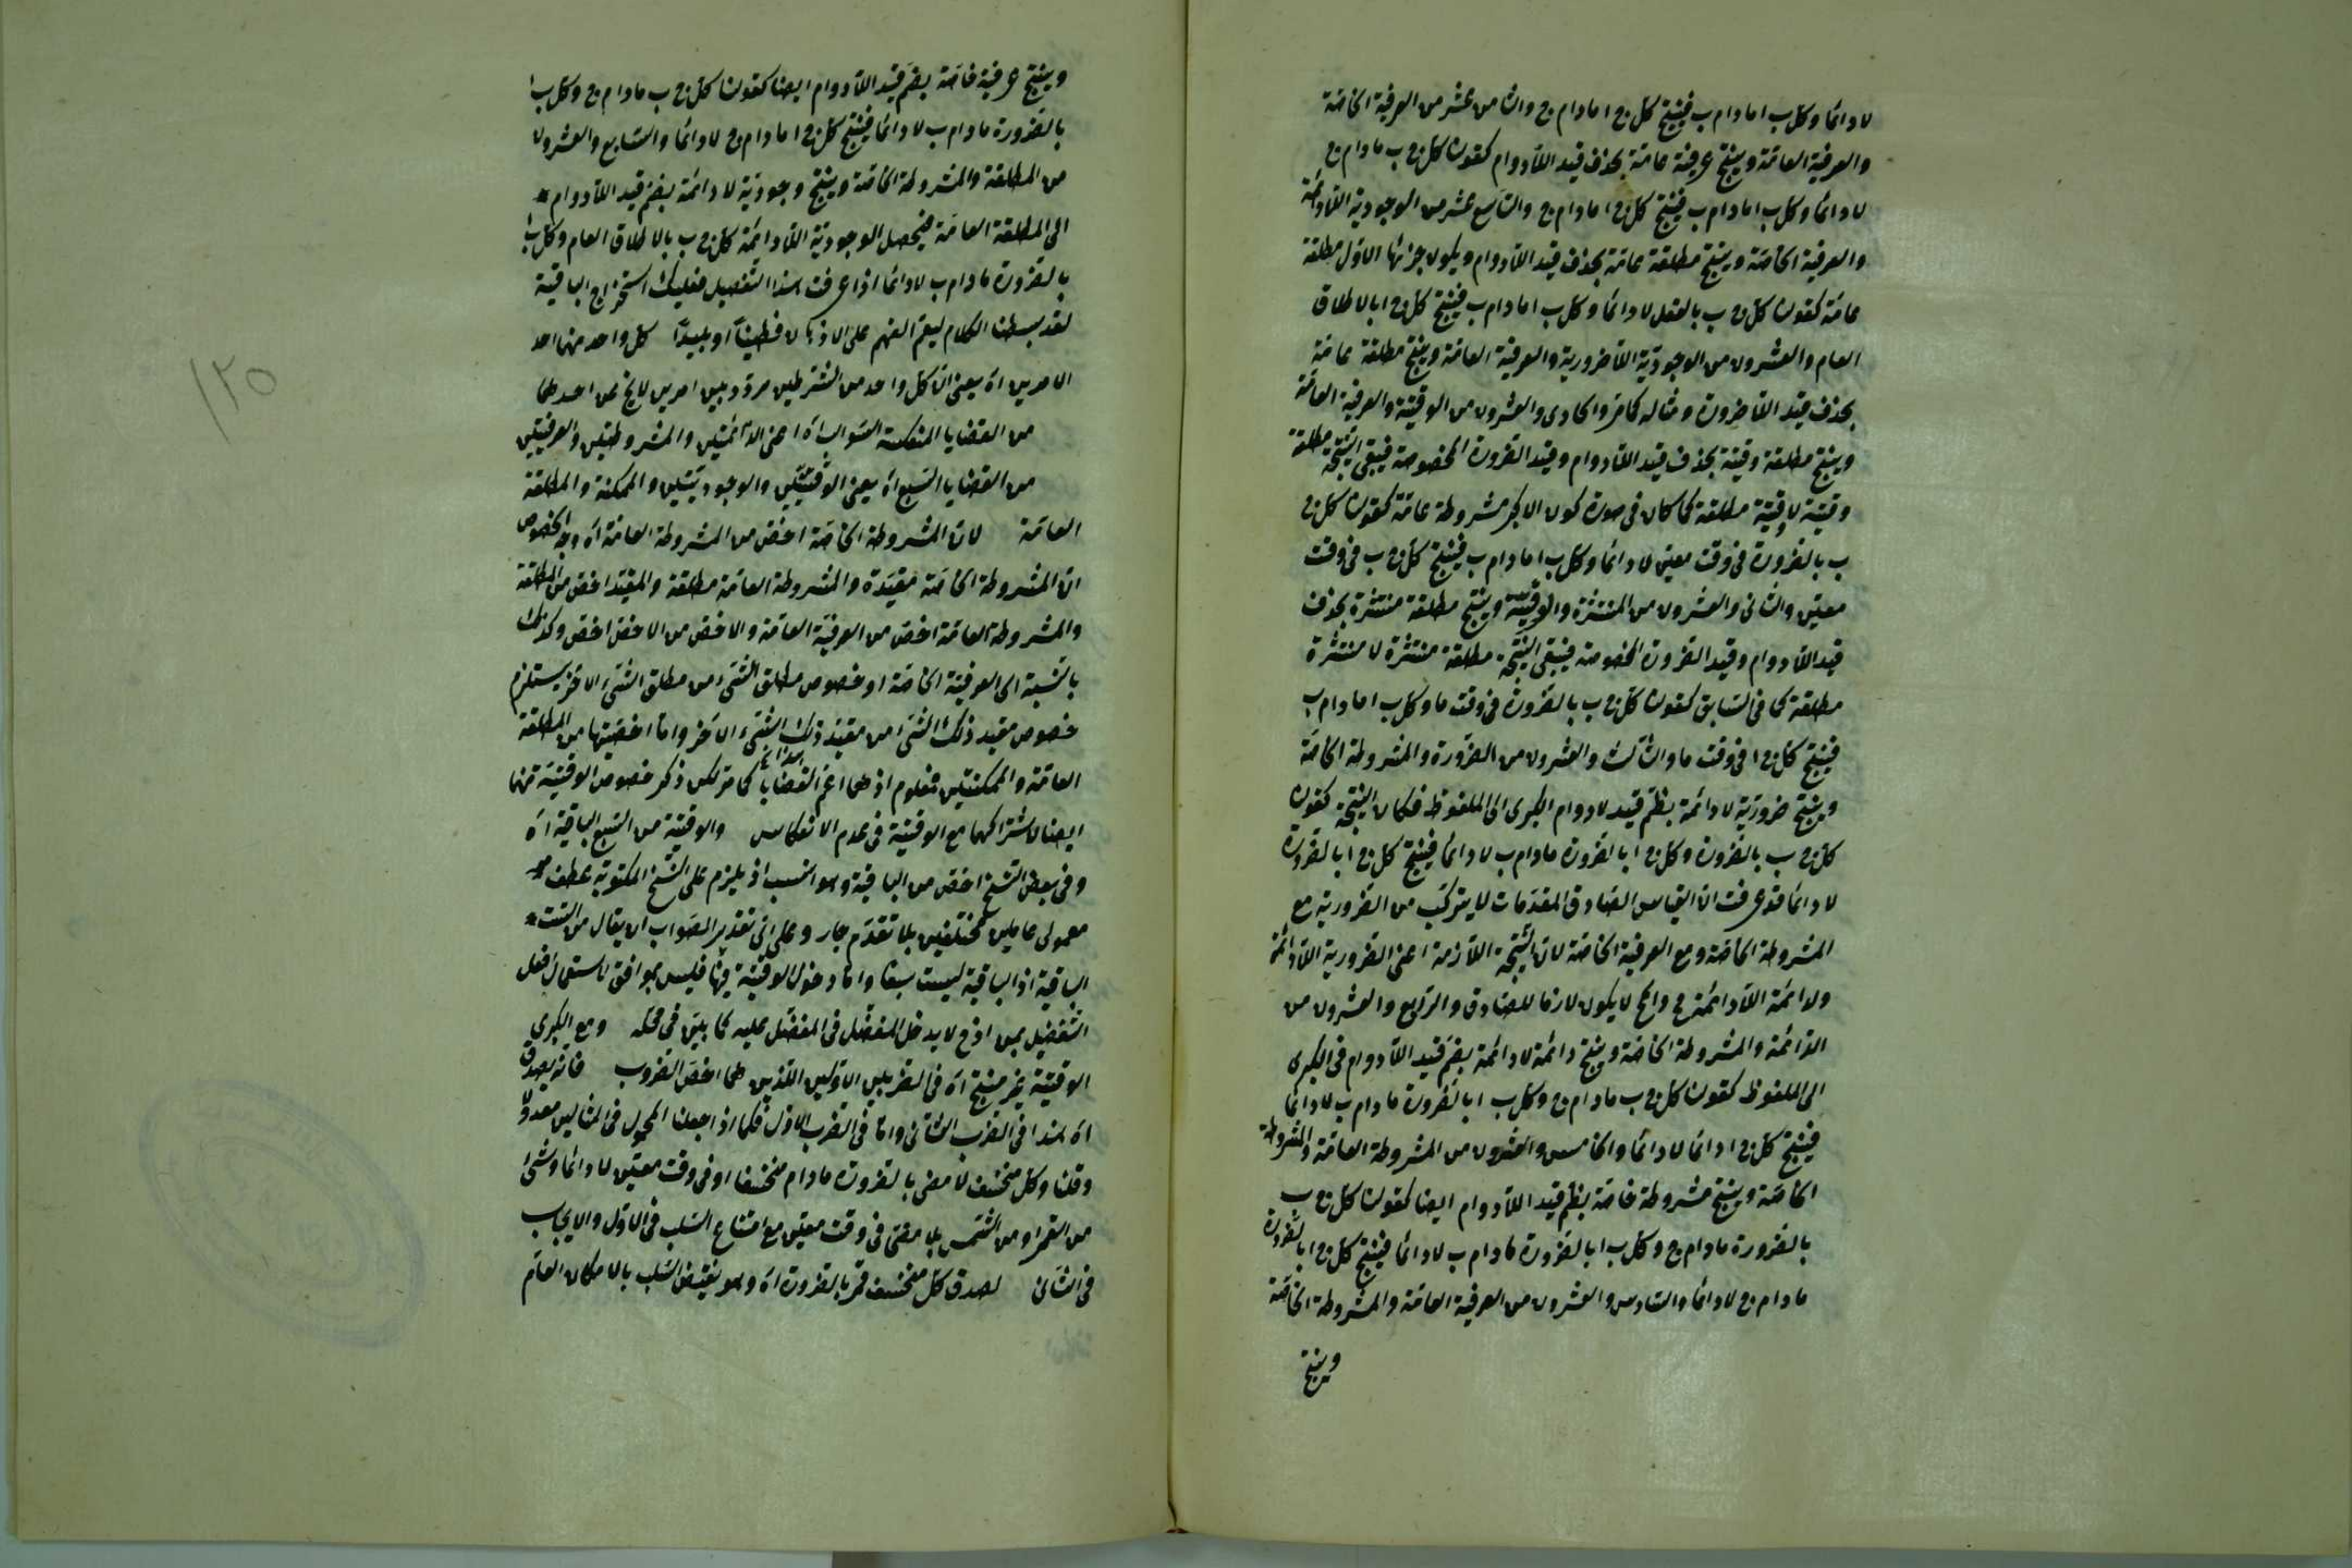 لا دائما وكل ب ا ما دام ب فينتج كل ج ا ما دام ج والثامن عشر من العرفية الخاصة
والعرفية العامة وينتج عرفية عامة بحذف قيد اللادوام كقولنا كل ج ب ما دام ج
لا دائما وكل ب ا ما دام ب فينتج كل ج ا ما دام ج والتاسع عشر من الوجودية اللادائمة
والعرفية الخاصة وينتج مطلقة عامة بحذف قيد اللادوام ويكون جزئها الاول مطلقة
عامة كقولنا كل ج ب بالفعل لا دائما وكل ب ا ما دام ب فينتج كل ج ا بالاطلاق
العام والعشرون من الوجودية اللاضرورية والعرفية العامة وينتج مطلقة عامة
بحذف قيد اللاضرورة ومثاله كما مر والحادى والعشرون من الوقتية والعرفية العامة
وينتج مطلقة وقتية بحذف قيد اللادوام وقيد الضرورة المخصوصة فيبقى النتيجة مطلقة
وقتية لا وقتية مطلقة كما كان فى صورة كون الاكبر مشروطة عامة كقولنا كل ج
ب بالضرورة فى وقت معين لا دائما وكل ب ا ما دام ب فينتج كل ج ب فى وقت
معين والثانى والعشرون من المنتشرة والوقتية وينتج مطلقة منتشرة بحذف
قيد اللادوام وقيد الضرورة المخصوصة فيبقى النتيجة مطلقة منتشرة لا منتشرة
مطلقة كما فى السابق كقولنا كل ج ب بالضرورة فى وقت ما وكل ب ا ما دام ب
فينتج كل ج ا فى وقت ما والثالث والعشرون من الضرورة والمشروطة الخاصة
وينتج ضرورية لا دائمة بضم قيد لا دوام الكبرى الى الملفوظ فكان النتيجة كقولنا
كل ج ب بالضرورة وكل ج ا بالضرورة ما دام ب لا دائما فينتج كل ج ا بالضرورة
لا دائما قد عرفت ان القياس الصادق المقدمات لا يتركب من الضرورية مع
المشروطة الخاصة ومع العرفية الخاصة لان النتيجة اللازمة اعنى الضرورية اللادائمة
والدائمة اللادائمة ح والمح لا يكون لازما للصادق والرابع والعشرون من
الدائمة والمشروطة الخاصة وينتج دائمة لا دائمة بضم قيد اللادوام فى الكبرى
الى الملفوظ كقولنا كل ج ب ما دام ج وكل ب ا بالضرورة ما دام ب لا دائما
فينتج كل ج ا دائما لا دائما والخامس والعشرون من المشروطة العامة والمشروطة
الخاصة وينتج مشروطة خاصة بضم قيد اللادوام ايضا كقولنا كل ج ب
بالضرورة ما دام ج وكل ب ا بالضرورة ما دام ب لا دائما فينتج كل ج ا بالضرورة
ما دام ج لا دائما والسادس والعشرون من العرفية العامة والمشروطة الخاصة
وينتج
وينتج عرفية خاصة بضم قيد اللادوام ايضا كقولنا كل ج ب ما دام ج وكل ب ا
بالضرورة ما دام ب لا دائما فينتج كل ج ا ما دام ج لا دائما والسابع والعشرون
من المطلقة والمشروطة الخاصة وينتج وجودية لا دائمة بضم قيد اللادوام
الى المطلقة العامة فيحصل الوجودية اللادائمة كل ج ب بالاطلاق العام وكل ب ا
بالضرورة ما دام ب لا دائما اذا عرفت هذا التفصيل فعليك استخراج الباقية
لقد بسطنا الكلام ليعم الفهم على الاذكياء فطينا او بليدا كل واحد منهما احد
الامرين اه يعنى ان كل واحد من الشرطين مردد بين امرين لا يخ عن احدهما
من القضايا المنعكسة السوالب اه اعنى الدائمتين والمشروطتين والعرفيتين
من القضايا السبع اه يعنى الوقتيتين والوجوديتين والممكنة والمطلقة
العامة لان المشروطة الخاصة اخص من المشروطة العامة اه وجه الخصوص
ان المشروطة الخاصة مقيدة والمشروطة العامة مطلقة والمقيد اخص من المطلقة
والمشروطة العامة اخص من العرفية العامة والاخص من الاخص اخص وكذلك
بالنسبة الى العرفية الخاصة او خصوص مطلق الشئ من مطلق الشئ الاخر يستلزم
خصوص مقيد ذلك الشئ من مقيد ذلك الشئ الاخر واما اخصيتها من المطلقة
العامة والممكنتين فمعلوم اذ هما اعم القضايا كما مر لكن ذكر خصوص الوقتية منها
ايضا لاشتراكهما مع الوقتية فى عدم الانعكاس والوقتية من السبع الباقية اه
وفى بعض النسخ اخص من الباقية وهو انسب اذ يلزم على النسخ المكتوبة عطف
معمولى عاملين مختلفين بلا تقدم جار وعلى اى تقدير الصواب ان يقال من الست
الباقية اذ الباقية ليست سبعا واما دخول الوقتية فيها فليس بموافق لاستعمال افعل
التفضيل بمن اذ ح لا يدخل المفضل فى المفضل عليه كما بين فى محله ومع الكبرى
الوقتية غير منتج اه فى الضربين الاولين اللذين هما اخص الضروب فانه يصدق
اه هذا فى الضرب الثانى واما فى الضرب الاول فكما اذا جعلنا المحمول فى المثالين معدولا
وقلنا وكل منخسف لا مضئ بالضرورة ما دام منخسفا او فى وقت معين لا دائما وشئ
من القمر او من الشمس بلا مضئ فى وقت معين مع امتناع السلب فى الاول والايجاب
فى الثانى لصدق كل منخسف قمر بالضرورة اه وهو نقيض السلب بالامكان العام
١٢٥